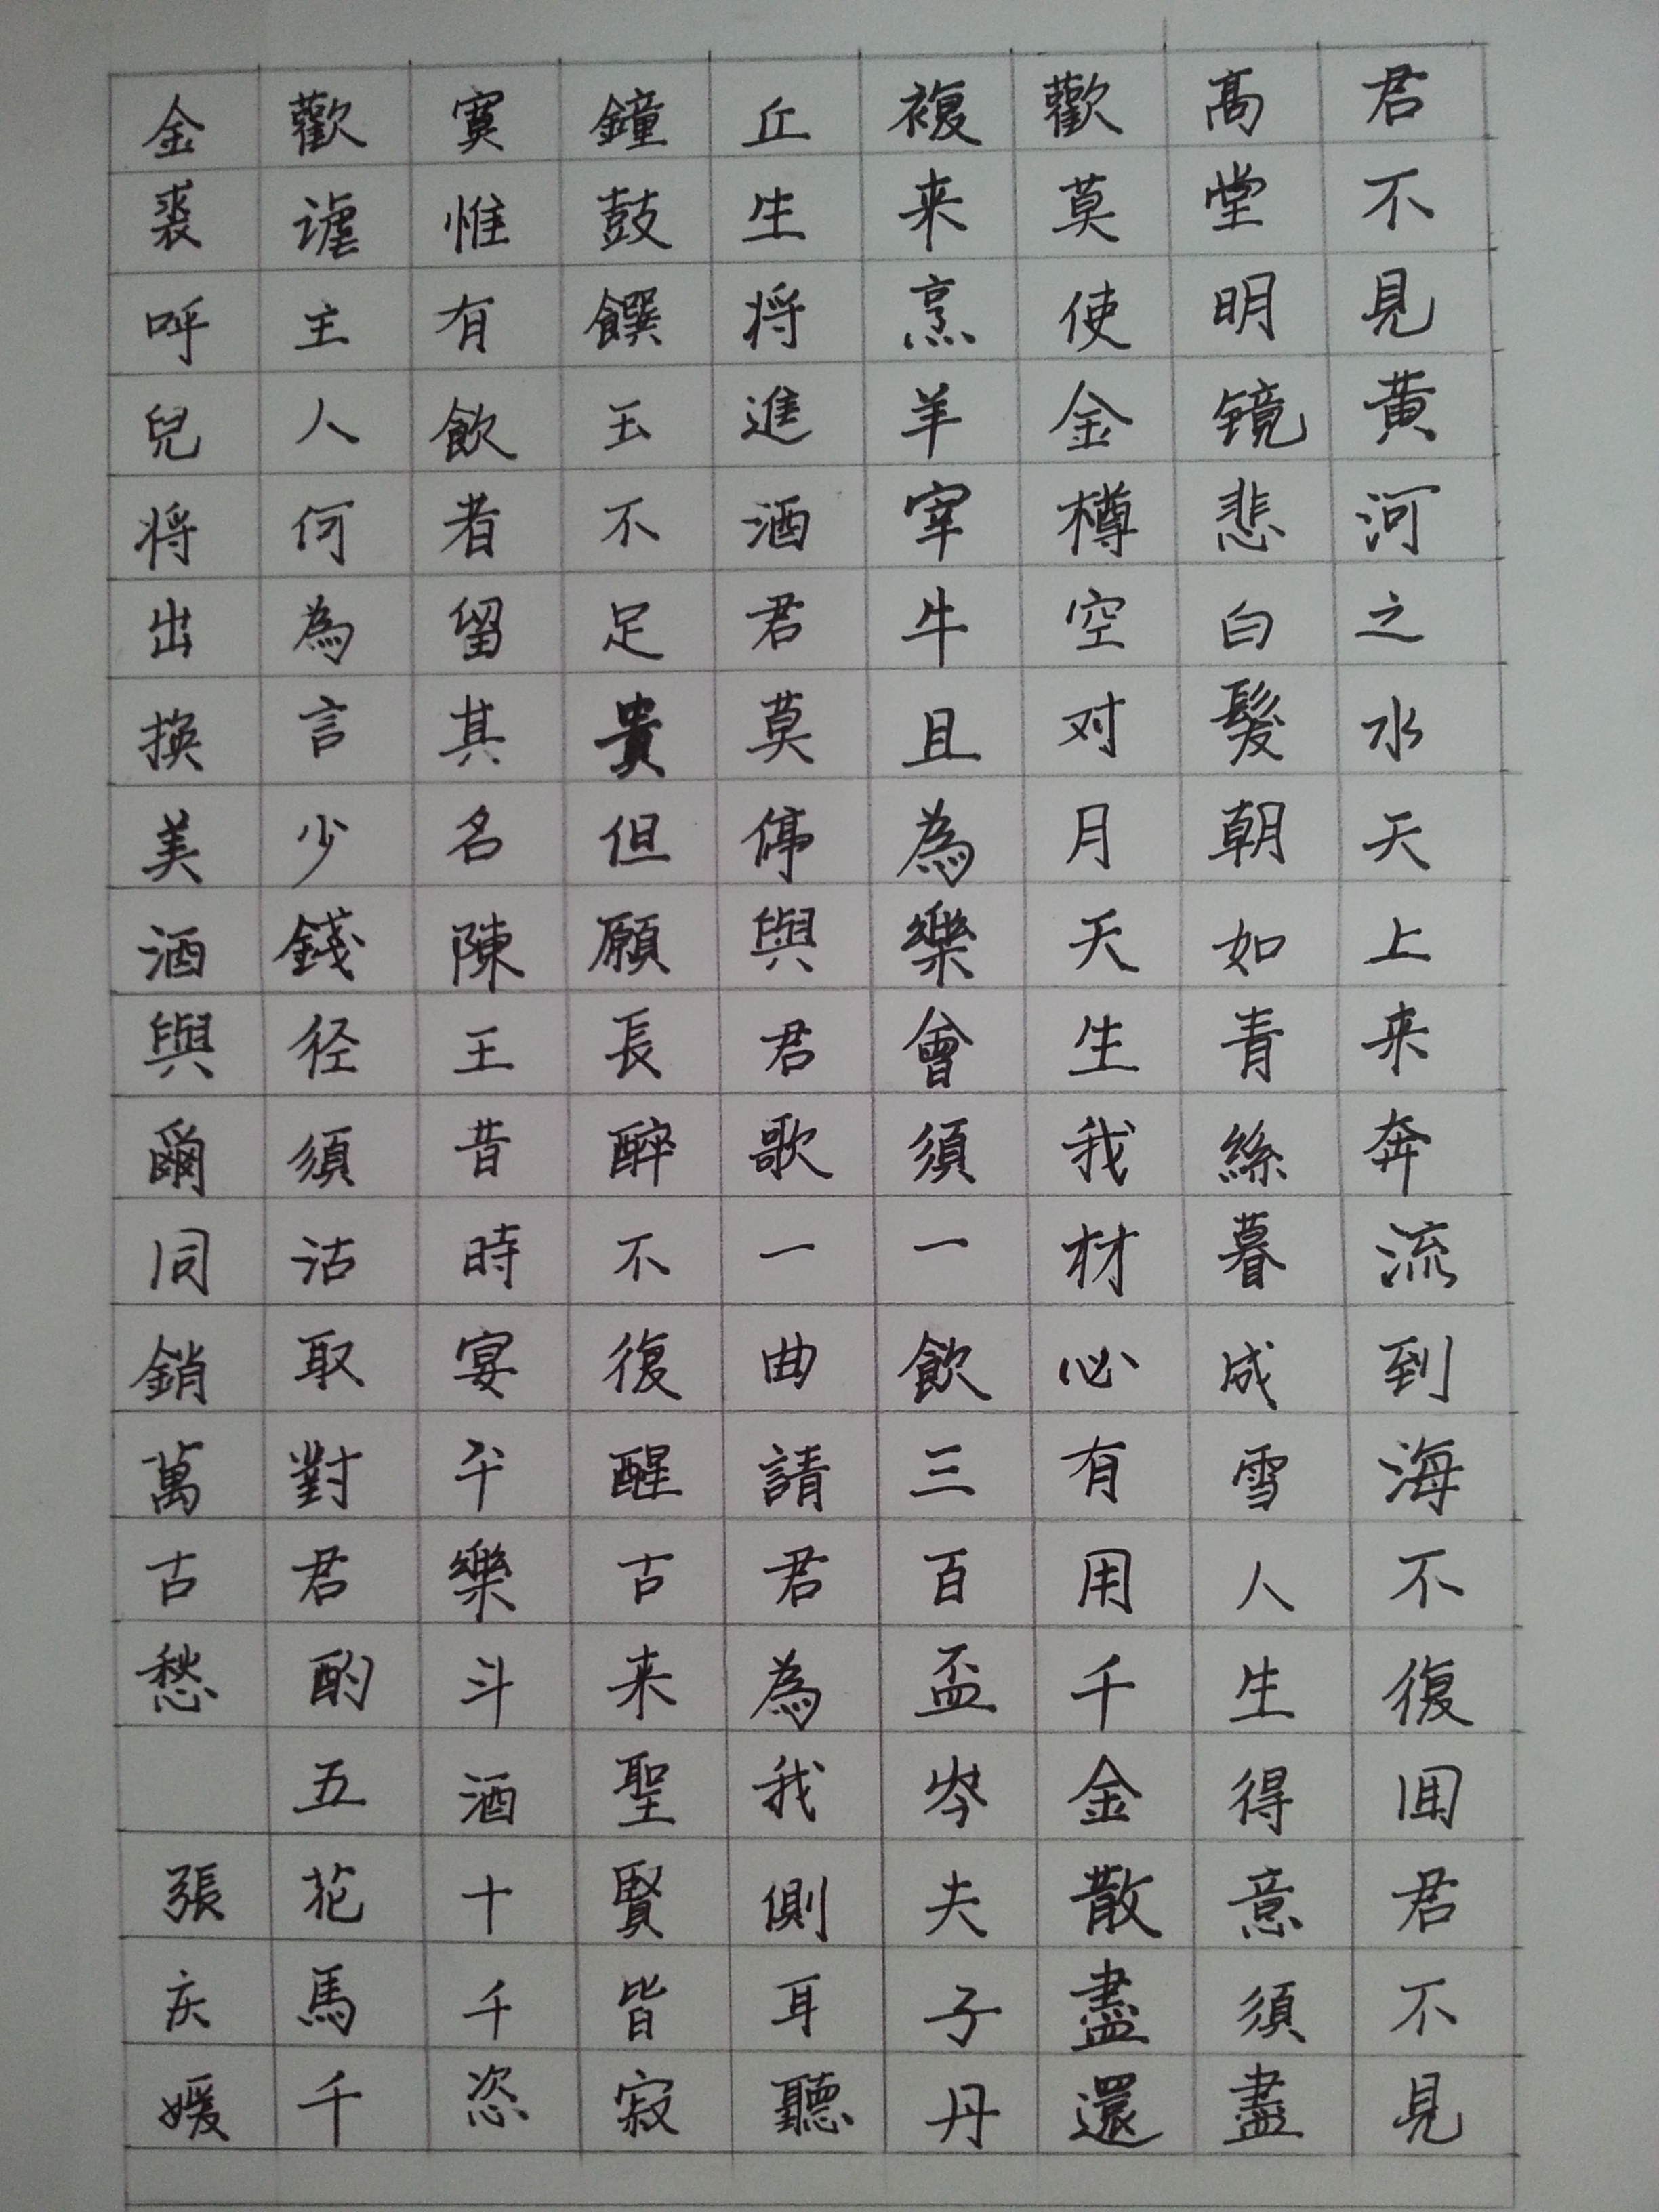 君不見黄河之水天上来奔流到海不復囬君不見
髙堂明镜悲白髮朝如青絲暮成雪人生得意須盡
歡莫使金樽空对月天生我材必有用千金散盡還
複来烹羊宰牛且為樂會須一飲三百盃岑夫子丹
丘生将進酒君莫停與君歌一曲請君為我側耳聽
鐘鼓饌玉不足貴但願長醉不復醒古来聖賢皆寂
寞惟有飲者留其名陳王昔時宴平樂斗酒十千恣
歡謔主人何為言少錢径須沽取對君酌五花馬千
金裘呼兒将出換美酒與爾同銷萬古愁 張庆媛